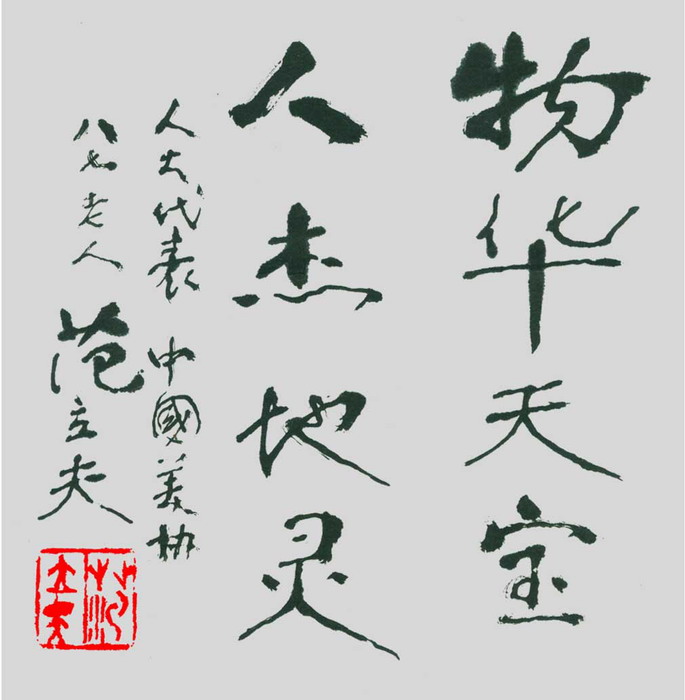 物华天宝
人杰地灵
人大代表 中國美协
八七老人 范立夫
范立夫